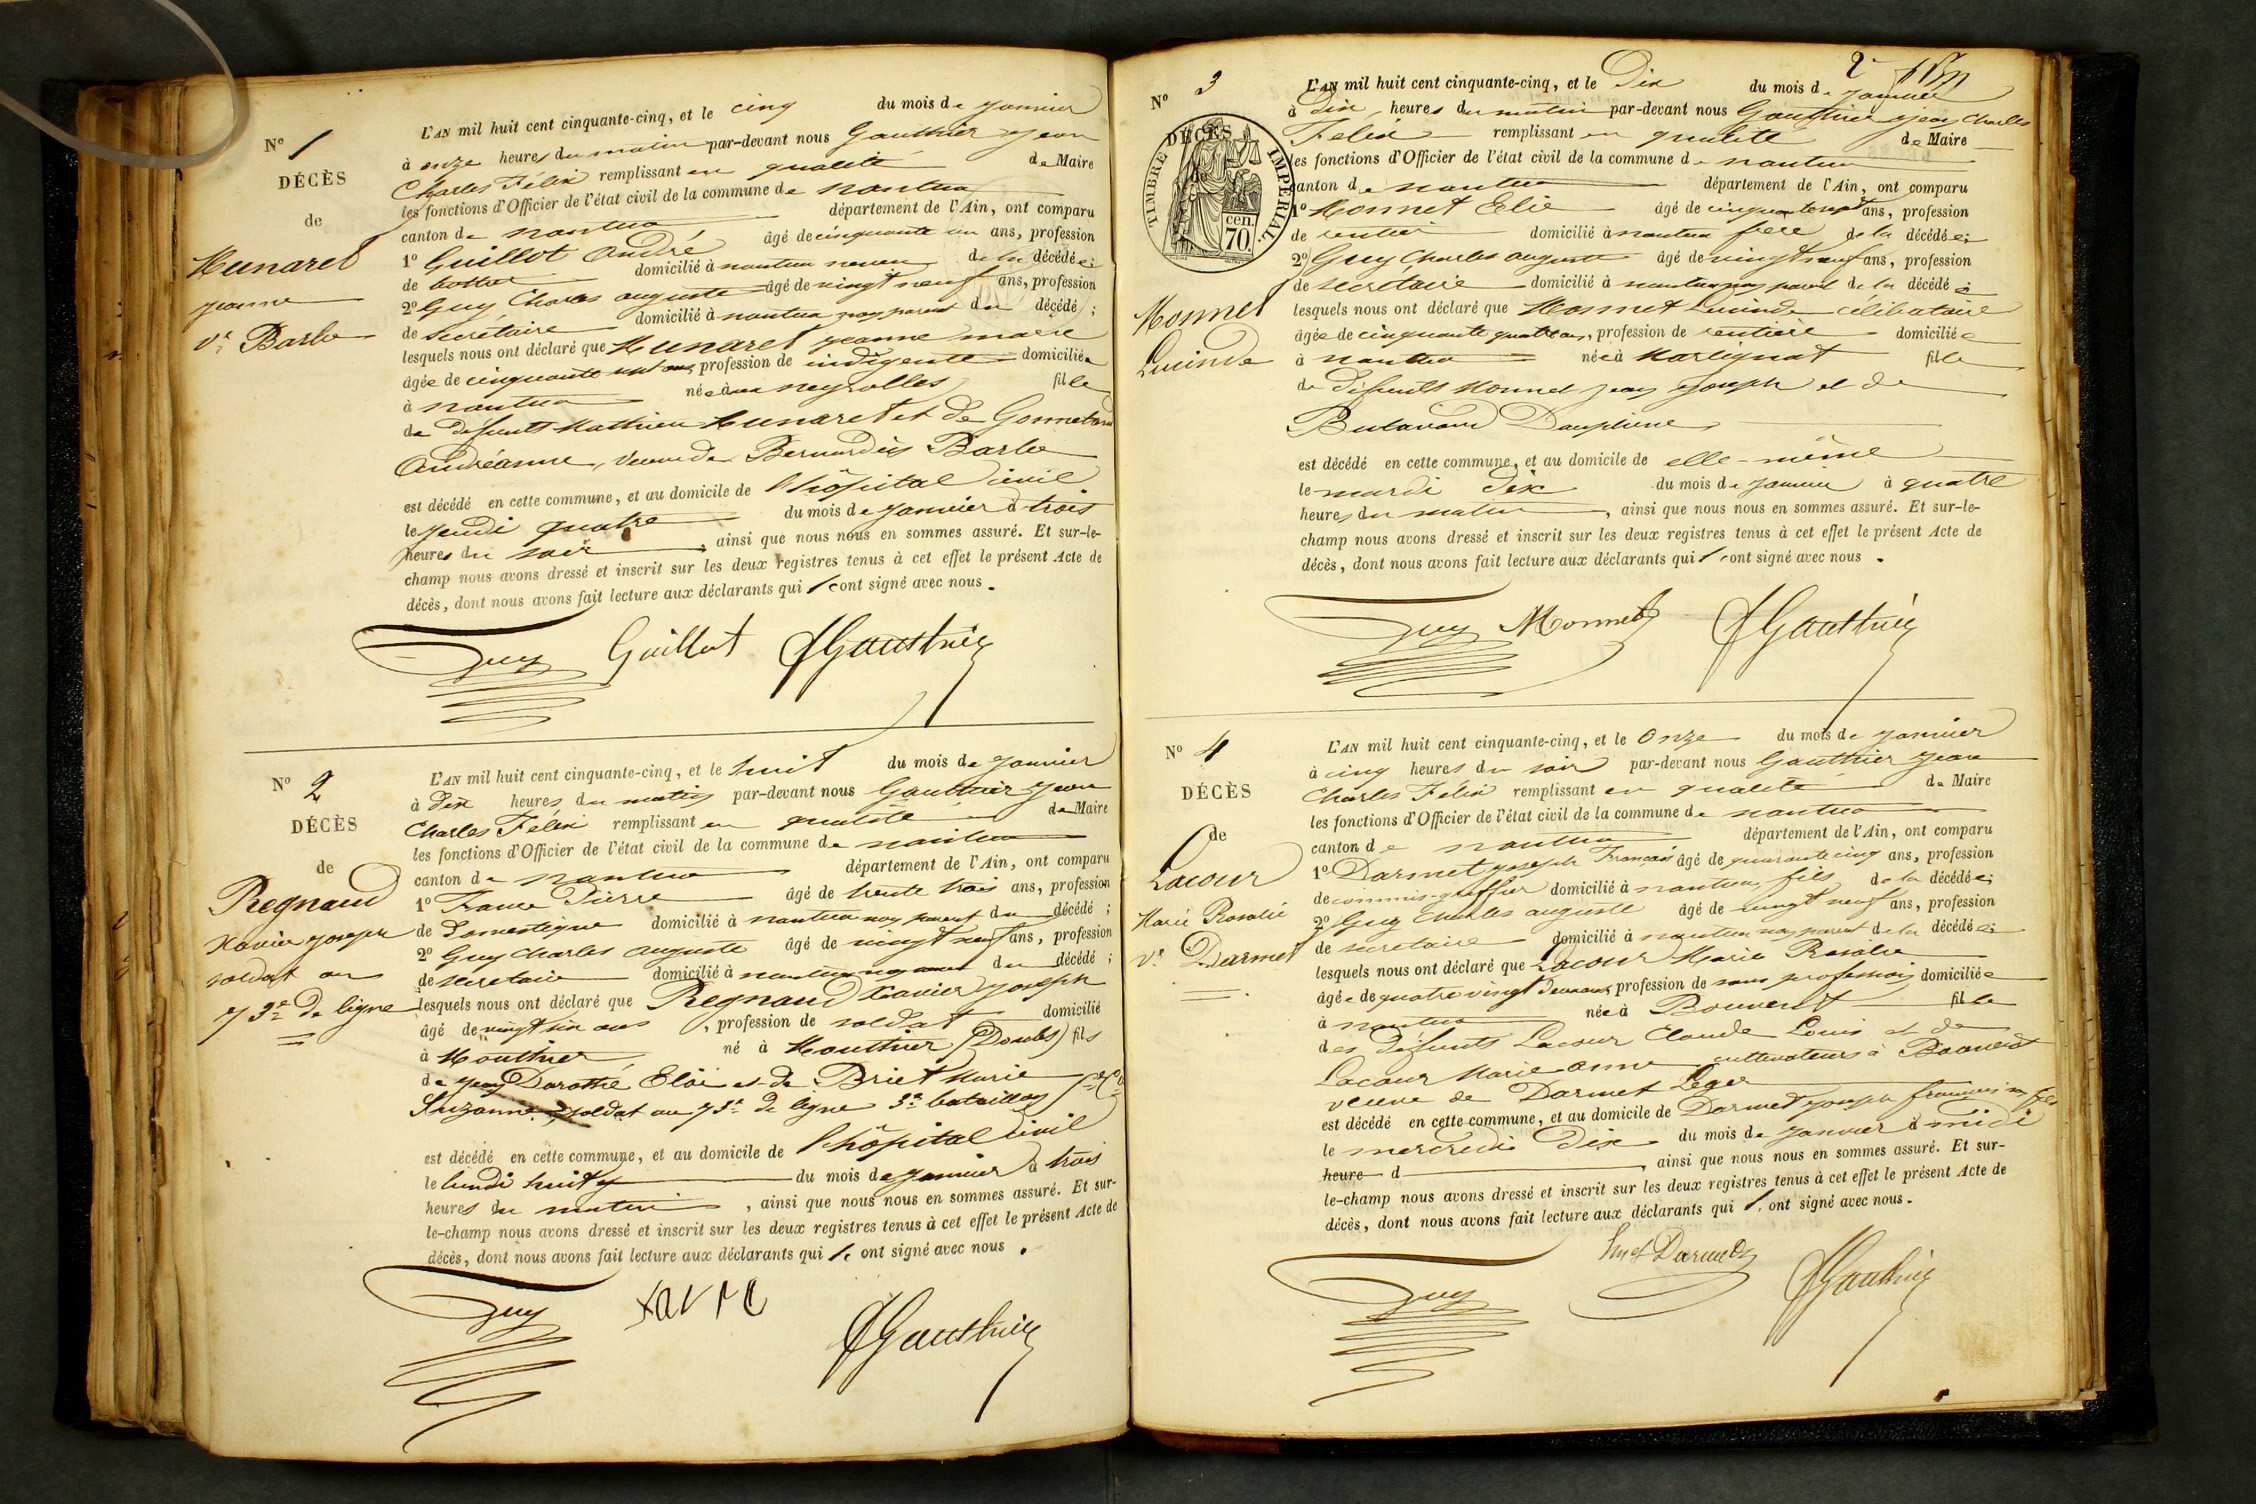 N° 1
DÉCÈS
de
Hunaret
jeanne
Ve Barbe
L'AN mil huit cent cinquante-cinq, et le cinq du mois de janvier
à onze heures du matin par-devant nous Gauthier jean
Charles Félix remplissant en qualité de Maire
les fonctions d'Officier de l'état civil de la commune de nantua
canton de nantua département de l'Ain, ont comparu
1° Guillot André âgé de cinquante un ans, profession
de domicilié à nantua neveu de la décédée;
2° Guy Charles auguste âgé de vingt neuf ans, profession
de Secrétaire domicilié à nantua non parent du décédé;
lesquels nous ont déclaré que Hunaret jeanne marie
âgée de cinquante profession de indigente domiciliée
à nantua née aux neyrolles fille
de défunts Mathieu Hunaret et de
Andréanne, veuve de Bernardin Barbe
est décédé en cette commune, et au domicile de l'hôpital civil
le jeudi quatre du mois de janvier à trois
heures du soir, ainsi que nous nous en sommes assuré. Et sur-le-
champ nous avons dressé et inscrit sur les deux registres tenus à cet effet le présent Acte de
décès, dont nous avons fait lecture aux déclarants qui l'ont signé avec nous.
Guy Guillot JGauthier
N° 2
DÉCÈS
de
Regnaud
Xavier joseph
soldat au
73e de ligne
L'AN mil huit cent cinquante-cinq, et le huit du mois de janvier
à dix heures du matin par-devant nous Gauthier jean
Charles Félix remplissant en qualité de Maire
les fonctions d'Officier de l'état civil de la commune de nantua
canton de nantua département de l'Ain, ont comparu
1° Favre Pierre âgé de trente trois ans, profession
de domestique domicilié à nantua non parent du décédé;
2° Guy Charles auguste âgé de vingt neuf ans, profession
de secrétaire domicilié à nantua non parent du décédé;
lesquels nous ont déclaré que Regnaud Xavier joseph
âgé de vingt six ans, profession de soldat domicilié
à Mouthier né à Mouthier (Doubs) fils
de jean Dorothé Eloi et de Briet Marie
Suzanne, soldat au 73e de ligne 3e bataillon
est décédé en cette commune, et au domicile de l'hôpital civil
le lundi huit du mois de janvier à trois
heures du matin, ainsi que nous nous en sommes assuré. Et sur-
le-champ nous avons dressé et inscrit sur les deux registres tenus à cet effet le présent Acte de
décès, dont nous avons fait lecture aux déclarants qui l'ont signé avec nous.
Guy favre JGauthier
2
N° 3
DÉCÈS
de
TIMBRE IMPÉRIAL
cen.
70.
Monnet
Lucinde
L'AN mil huit cent cinquante-cinq, et le Dix du mois de janvier
à dix heures du matin par-devant nous Gauthier jean Charles
Felix remplissant en qualité de Maire
les fonctions d'Officier de l'état civil de la commune de nantua
canton de nantua département de l'Ain, ont comparu
1° Monnet Elie âgé de cinquante sept ans, profession
de rentier domicilié à nantua frère de la décédée;
2° Guy Charles auguste âgé de vingt neuf ans, profession
de secrétaire domicilié à nantua non parent de la décédée
lesquels nous ont déclaré que Monnet Lucinde célibataire
âgée de cinquante quatre ans, profession de rentière domiciliée
à nantua née à Martignat fille
de défunts Monnet jean joseph et de
Dauphine
est décédé en cette commune, et au domicile de elle-même
le mardi dix du mois de janvier à quatre
heures du matin, ainsi que nous nous en sommes assuré. Et sur-le-
champ nous avons dressé et inscrit sur les deux registres tenus à cet effet le présent Acte de
décès, dont nous avons fait lecture aux déclarants qui l'ont signé avec nous.
Guy Monnet JGauthier
N° 4
DÉCÈS
de
Lacour
Marie Rosalie
Ve Darmet
L'AN mil huit cent cinquante-cinq, et le Onze du mois de janvier
à cinq heures du soir par-devant nous Gauthier jean
Charles Félix remplissant en qualité de Maire
les fonctions d'Officier de l'état civil de la commune de nantua
canton de nantua département de l'Ain, ont comparu
1° Darmet joseph François âgé de quarante cinq ans, profession
de commis greffier domicilié à nantua, fils de la décédée;
2° Guy Charles auguste âgé de vingt neuf ans, profession
de secrétaire domicilié à nantua non parent de la décédée;
lesquels nous ont déclaré que Lacour Marie Rosalie
âgée de quatre vingt deux ans, profession de sans profession domiciliée
à nantua née à Bouvent fille
des défunts Lacour Claude Louis et de
Lacour Marie anne cultivateurs à Bouvent
veuve de Darmet Léger
est décédé en cette commune, et au domicile de Darmet joseph françois son fils
le mercredi dix du mois de janvier à midi
heure d , ainsi que nous nous en sommes assuré. Et sur-
le-champ nous avons dressé et inscrit sur les deux registres tenus à cet effet le présent Acte de
décès, dont nous avons fait lecture aux déclarants qui l'ont signé avec nous.
Guy Darmet JGauthier